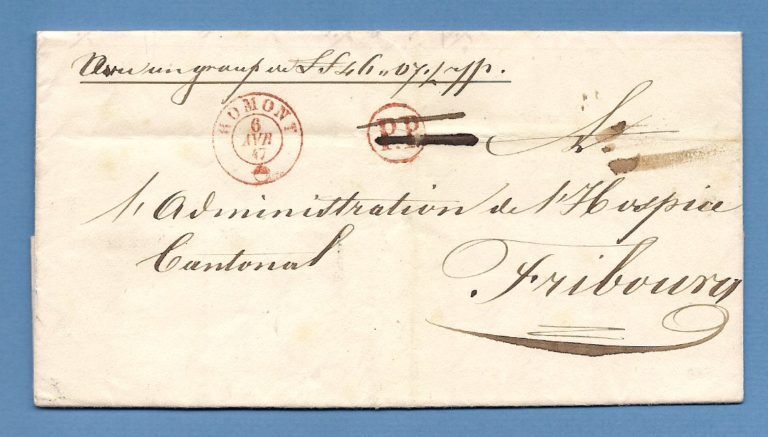 Avec un group de
ROMONT
6
AVR
47
P.P.
A
l'Administration de l'Hospice
Cantonal
Fribourg